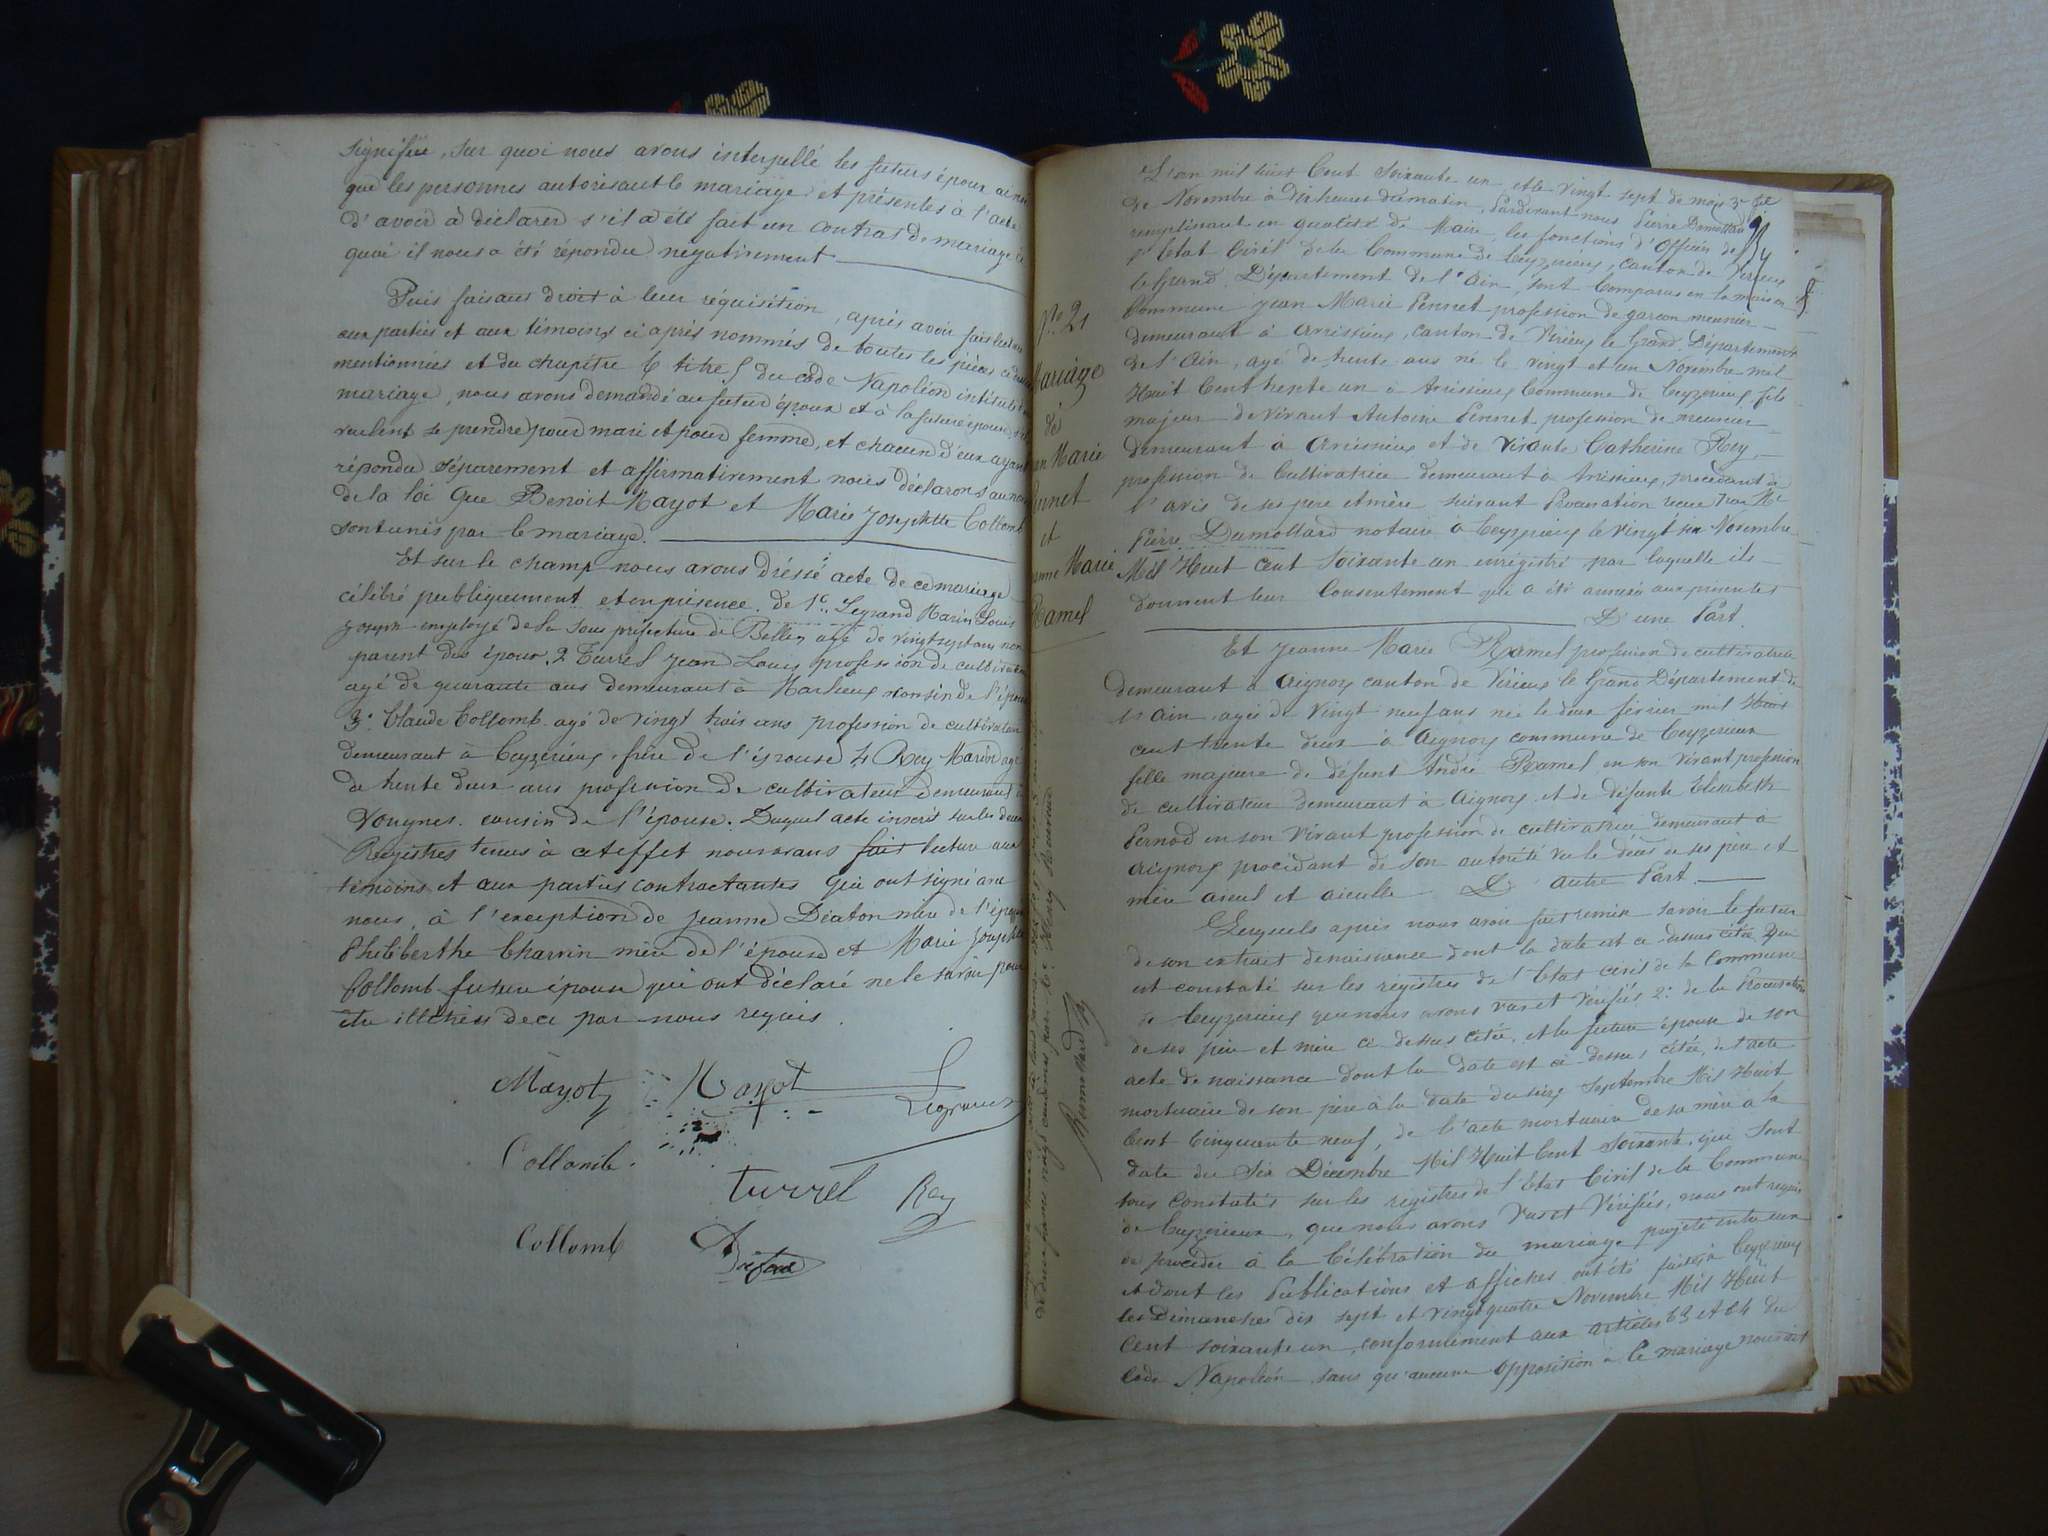 signifiée, sur quoi nous avons interpellé les futurs époux ainsi
que les personnes autorisant le mariage et présentes à l'acte
d'avoir à déclarer s'il a été fait un contrat de mariage à
quoi il nous a été répondu négativement
Puis faisant droit à leur réquisition, après avoir fait lecture
aux parties et aux témoins ci après nommés de toutes les pièces ci dessus
mentionnées et du chapitre 6 titre 5 du code Napoléon intitulé du
mariage, nous avons demandé au futur époux et à la future épouse s'ils
veulent se prendre pour mari et pour femme, et chacun d'eux ayant
répondu séparement et affirmativement nous déclarons au nom
de la loi que Benoit Mayot et Marie Josephette Collomb
sont unis par le mariage.
Et sur le champ nous avons dréssé acte de ce mariage
célébré publiquement et en présence de 1º Legrand Marin Louis
Joseph employé de la sous préfecture de Belley agé de vingt sept ans non
parent des époux, 2 Turrel Jean Louis profession de cultivateur
agé de quarante ans demeurant à Marlieux cousin de l'époux
3º Claude Collomb agé de vingt trois ans profession de cultivateur
demeurant à Ceyzerieux, frère de l'épouse 4 Rey Marin agé
de trente deux ans profession de cultivateur demeurant à
Vougnes. cousin de l'épouse. Duquel acte inscrit sur les deux
Registres tenus à cet effet nous avons fait lecture aux
témoins et aux parties contractantes qui ont signé avec
nous, à l'exception de Jeanne mère de l'époux
Philiberthe Charvin mère de l'épouse et Marie Josephte
Collomb future épouse qui ont déclaré ne le savoir pour
être illétrés de ce par nous requis.
Mayot Mayot Legrand
Collomb
turrel Rey
Collomb
Nº 21
Mariage
de
Jean Marie
Pennet
et
Jeanne Marie
Ramel
Dumollard
L'an mil huit Cent Soixante un et le vingt sept du mois
de Novembre à dix heures du matin, Pardevant nous Pierre Dumollard
remplissant en qualité de Maire, les fonctions d'Officier de
l'Etat Civil de la Commune de Ceyzerieux, canton de Virieux
le Grand Département de l'Ain, sont Comparus en la maison
Commune Jean Marie Pennet profession de garçon meunier
demeurant à Avrissieux, canton de Virieux le Grand Département
de l'Ain, agé de trente ans né le vingt et un Novembre mil
Huit Cent trente un à Avrissieux Commune de Ceyzerieux, fils
majeur de vivant Antoine Pennet profession de meunier
demeurant à Avrissieux et de vivante Catherine Rey,
profession de Cultivatrice demeurant à Avrissieux, procédant de
l'avis de ses père et mère suivant Procuration reçue par Me
Pierre Dumollard notaire à Ceyzerieux le vingt six Novembre
Mil Huit cent soixante un enregistré par laquelle ils
donnent leur Consentement qui a été annexé aux présentes
D'une Part.
Et Jeanne Marie Ramel profession de cultivatrice
demeurant à Aignoz canton de Virieux le Grand Département de
l'Ain, agée de Vingt neuf ans née le deux février mil Huit
cent trente deux à Aignoz commune de Ceyzerieux
fille majeure de défunt André Ramel en son vivant profession
de cultivateur demeurant à Aignoz et de défunte Elisabeth
Pernod en son Vivant profession de cultivatrice demeurant à
Aignoz procédant de son autorité vu le décès de ses père et
mère aieul et aieulle D'autre Part
Lesquels après nous avoir fait remise savoir le futur
de son extrait de naissance dont la date est ci dessus citée, qui
est constaté sur les registres de l'Etat civil de la Commune
de Ceyzerieux que nous avons vus et vérifiés 2º de la Procuration
de ses père et mère ci dessus citée, et la future épouse de son
acte de naissance dont la date est ci dessus citée, de l'acte
mortuaire de son père à la date du seize Septembre Mil Huit
Cent Cinquante neuf, de l'acte mortuaire de sa mère à la
date du Six Décembre Mil Huit Cent Soixante, qui sont
tous constatés sur les registres de l'Etat Civil de la Commune
de Ceyzerieux, que nous avons Vus et Vérifiés, nous ont requis
de procéder à la Célébration du mariage projeté entre eux
et dont les Publications et affiches ont été faites à Ceyzerieux
les Dimanches dix sept et vingt quatre Novembre Mil Huit
Cent soixante un, conformément aux articles 63 et 64 du
Code Napoléon, sans qu'aucune opposition à ce mariage nous ait